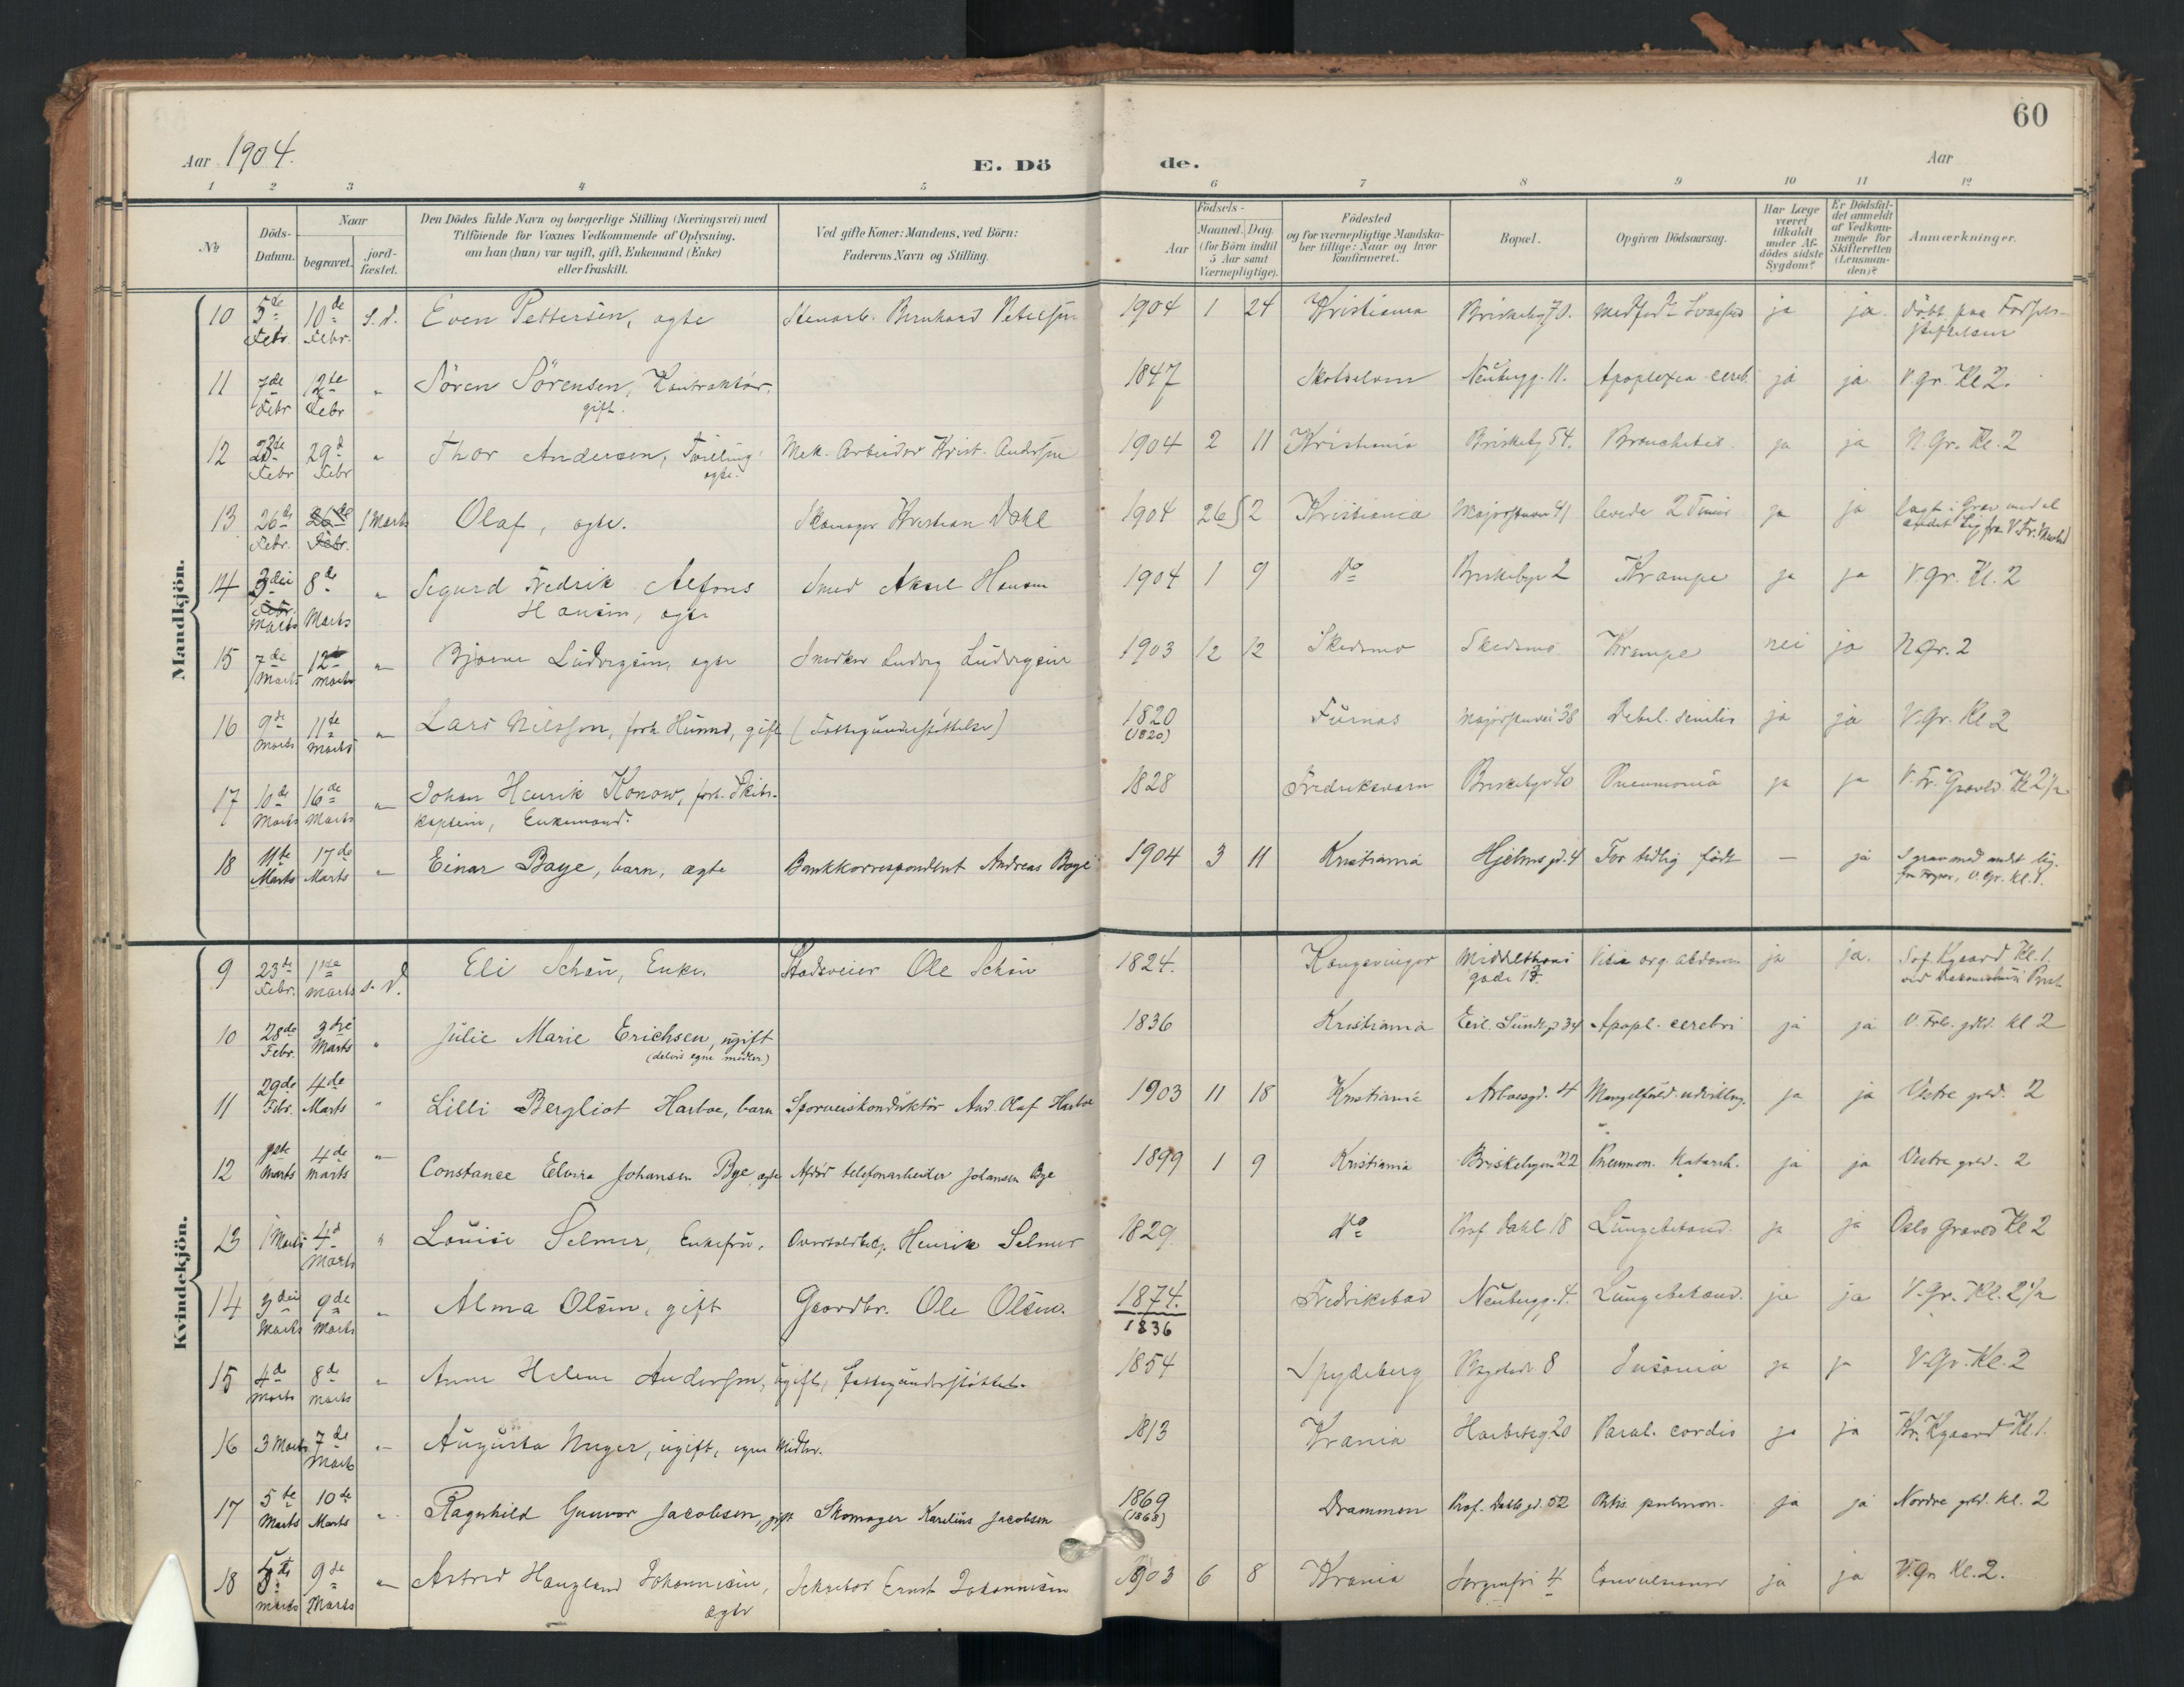 60
Aar 1904. E. Dö de. Aar
1 2 3 4 5 6 7 8 9 10 11 12
No
Döds-Datum.
Naar
begravet.
jord-fæstet.
Den Dödes fulde Navn og borgerlige Stilling (Næringsvei) med
Tilföiende for Voxnes Vedkommende af Oplysning,
om han (hun) var ugift, gift, Enkemand (Enke)
eller fraskilt.
Ved gifte Koner: Mandens, ved Börn:
Faderens Navn og Stilling.
Födsels-
Aar
Maaned. Dag.
(for Börn indtil
5 Aar samt
Værnepligtige).
Födested
og for værnepligtige Mandska-
ber tillige: Naar og hvor
konfirmeret.
Bopæl.
Opgiven Dödsaarsag.
Har Læge
været
tilkaldt
under Af-
dödes sidste
Sygdom?
Er Dödsfal-
det anmeldt
af Vedkom-
mende for
Skifteretten
(Lensman-
den)?
Anmærkninger.
Mandkjön.
10 5de Febr. 10de Febr. s. d. Even Pettersen, ægte Stenarb. Bernhard Petersen 1904 1 24 Kristiania Briskebyv. 70. Medfødt Svaghed ja ja. döbt paa Fødsels-
stiftelsen
11 7de Febr 12te Febr " Sören Sörensen, Kontraktör,
gift.
1847 Skotselven Neubergg. 11. Apoplexia cereb. ja ja V. gr. Kl 2.
12 23de Febr 29d Febr " Thor Andersen, Tvilling
ægte.
Mek. Arbeider Krist. Andersen 1904 2 11 Kristiania Briskebyv 54. Bronchites ja ja N. Gr. Kl. 2
13 26de Febr. 1 Marts Olaf, ægte. Skomager Kristian Dahl 1904 26/2 Kristiania Majorstuen 41 levede 2 Timer ja ja lagt i Grav med et
andet Lig fra V. Fr.
14 3die Marts 8de Marts " Sigurd Fredrik Alfons
Hansen, ægte
Smed Aksel Hansen 1904 1 9 Do Briskebyv 2 Krampe ja ja V gr. Kl. 2
15 7de Marts 12te Marts " Bjarne Ludvigsen, ægte Snedker Ludvig Ludvigsen 1903 12 12 Skedsmo Skedsmo Krampe nei ja N Gr. 2
16 9de Marts 11te Marts " Lars Nilssen, forh. Husmd, gift (Fattigunderstöttelse) 1820
(1820)
Furnæs Majorstuvei 38 Debil. senilis ja ja V. Gr. Kl 2
17 10de Marts 16de Marts " Johan Henrik Konow, forh. Skibs-
kaptein, Enkemand.
1828 Fredriksværn Briskebyv 40 Pneumonia ja ja V. Fr. Gravld. Kl 2 1/2
18 11te Marts 17de Marts " Einar Baye, barn, ægte Bankkorrespondent Andreas Baye 1904 3 11 Kristiania Hjelms gd. 4 For tidlig født — ja I grav med andet lig.
V. Gr. Kl. 1.
Kvindekjön.
9 23de Febr. 1ste Marts s. d. Eli Schøn, Enke. Stadsveier Ole Schøn 1824. Kongsvinger Middelthuns
gade 17.
Vitia org. abdom ja ja. Kgaard Kl. 1.
10 28de Febr. 3die Marts " Julie Marie Erichsen, ugift
(delvis egne midler)
1836 Kristiania Eil. Sundts gd 34 Apopl. cerebri ja ja V. Frls. gvld. kl 2
11 29de Febr. 4de Marts " Lilli Bergliot Harboe, barn Sporveiskonduktör And. Olaf Harboe 1903 11 18 Kristiania Arbosgd. 4 Mangelfuld udvikling. ja ja Vestre gvld. 2
12 1ste Marts 4de Marts " Constance Elvira Johansen Bye, ægte Afdød telefonarbeider Johansen Bye 1899 1 9 Kristiania Briskebyvn 22 Pneumon. Katarrh. ja ja Vestre gvld. 2
13 1 Marts 4d Marts " Louise Selmer, Enkefru, Overtoldbetj. Henrik Selmer 1829 Do Prof Dahl 18 Lungebetænd. ja ja Oslo Gravld Kl 2
14 3die Marts 9de Marts " Alma Olsen, gift Gaardbr. Ole Olsen. 1874.
1836
Fredrikstad Neubergg. 4. Lungebetænd. ja ja V. Gr. Kl. 2 1/2
15 4de Marts 8de Marts " Anne Helene Andersen, ugift, fattigunderstöttet. 1854 Spydeberg Bygdö 8 ja ja V. Gr. Kl. 2
16 3 Marts 7de Marts " Augusta Unger, ugift, egne Midler. 1813 Krania Harbitzg. 20 Paral. cordis ja ja Kr. Kgaard Kl. 1.
17 5te Marts 10de Marts " Ragnhild Gunvor Jacobsen, gift Skomager Karelius Jacobsen 1869
(1868)
Drammen Prof. Dahls gd. 52 Phtis. pulmon. ja ja Nordre gvld. kl. 2
18 Marts 9de Marts " Astrid Haugland Johannesen,
ægte
Sekretær Ernst Johannesen 1903 6 8 Krania Sorgenfri 4 Convulsioner ja ja V. Gr. Kl. 2.